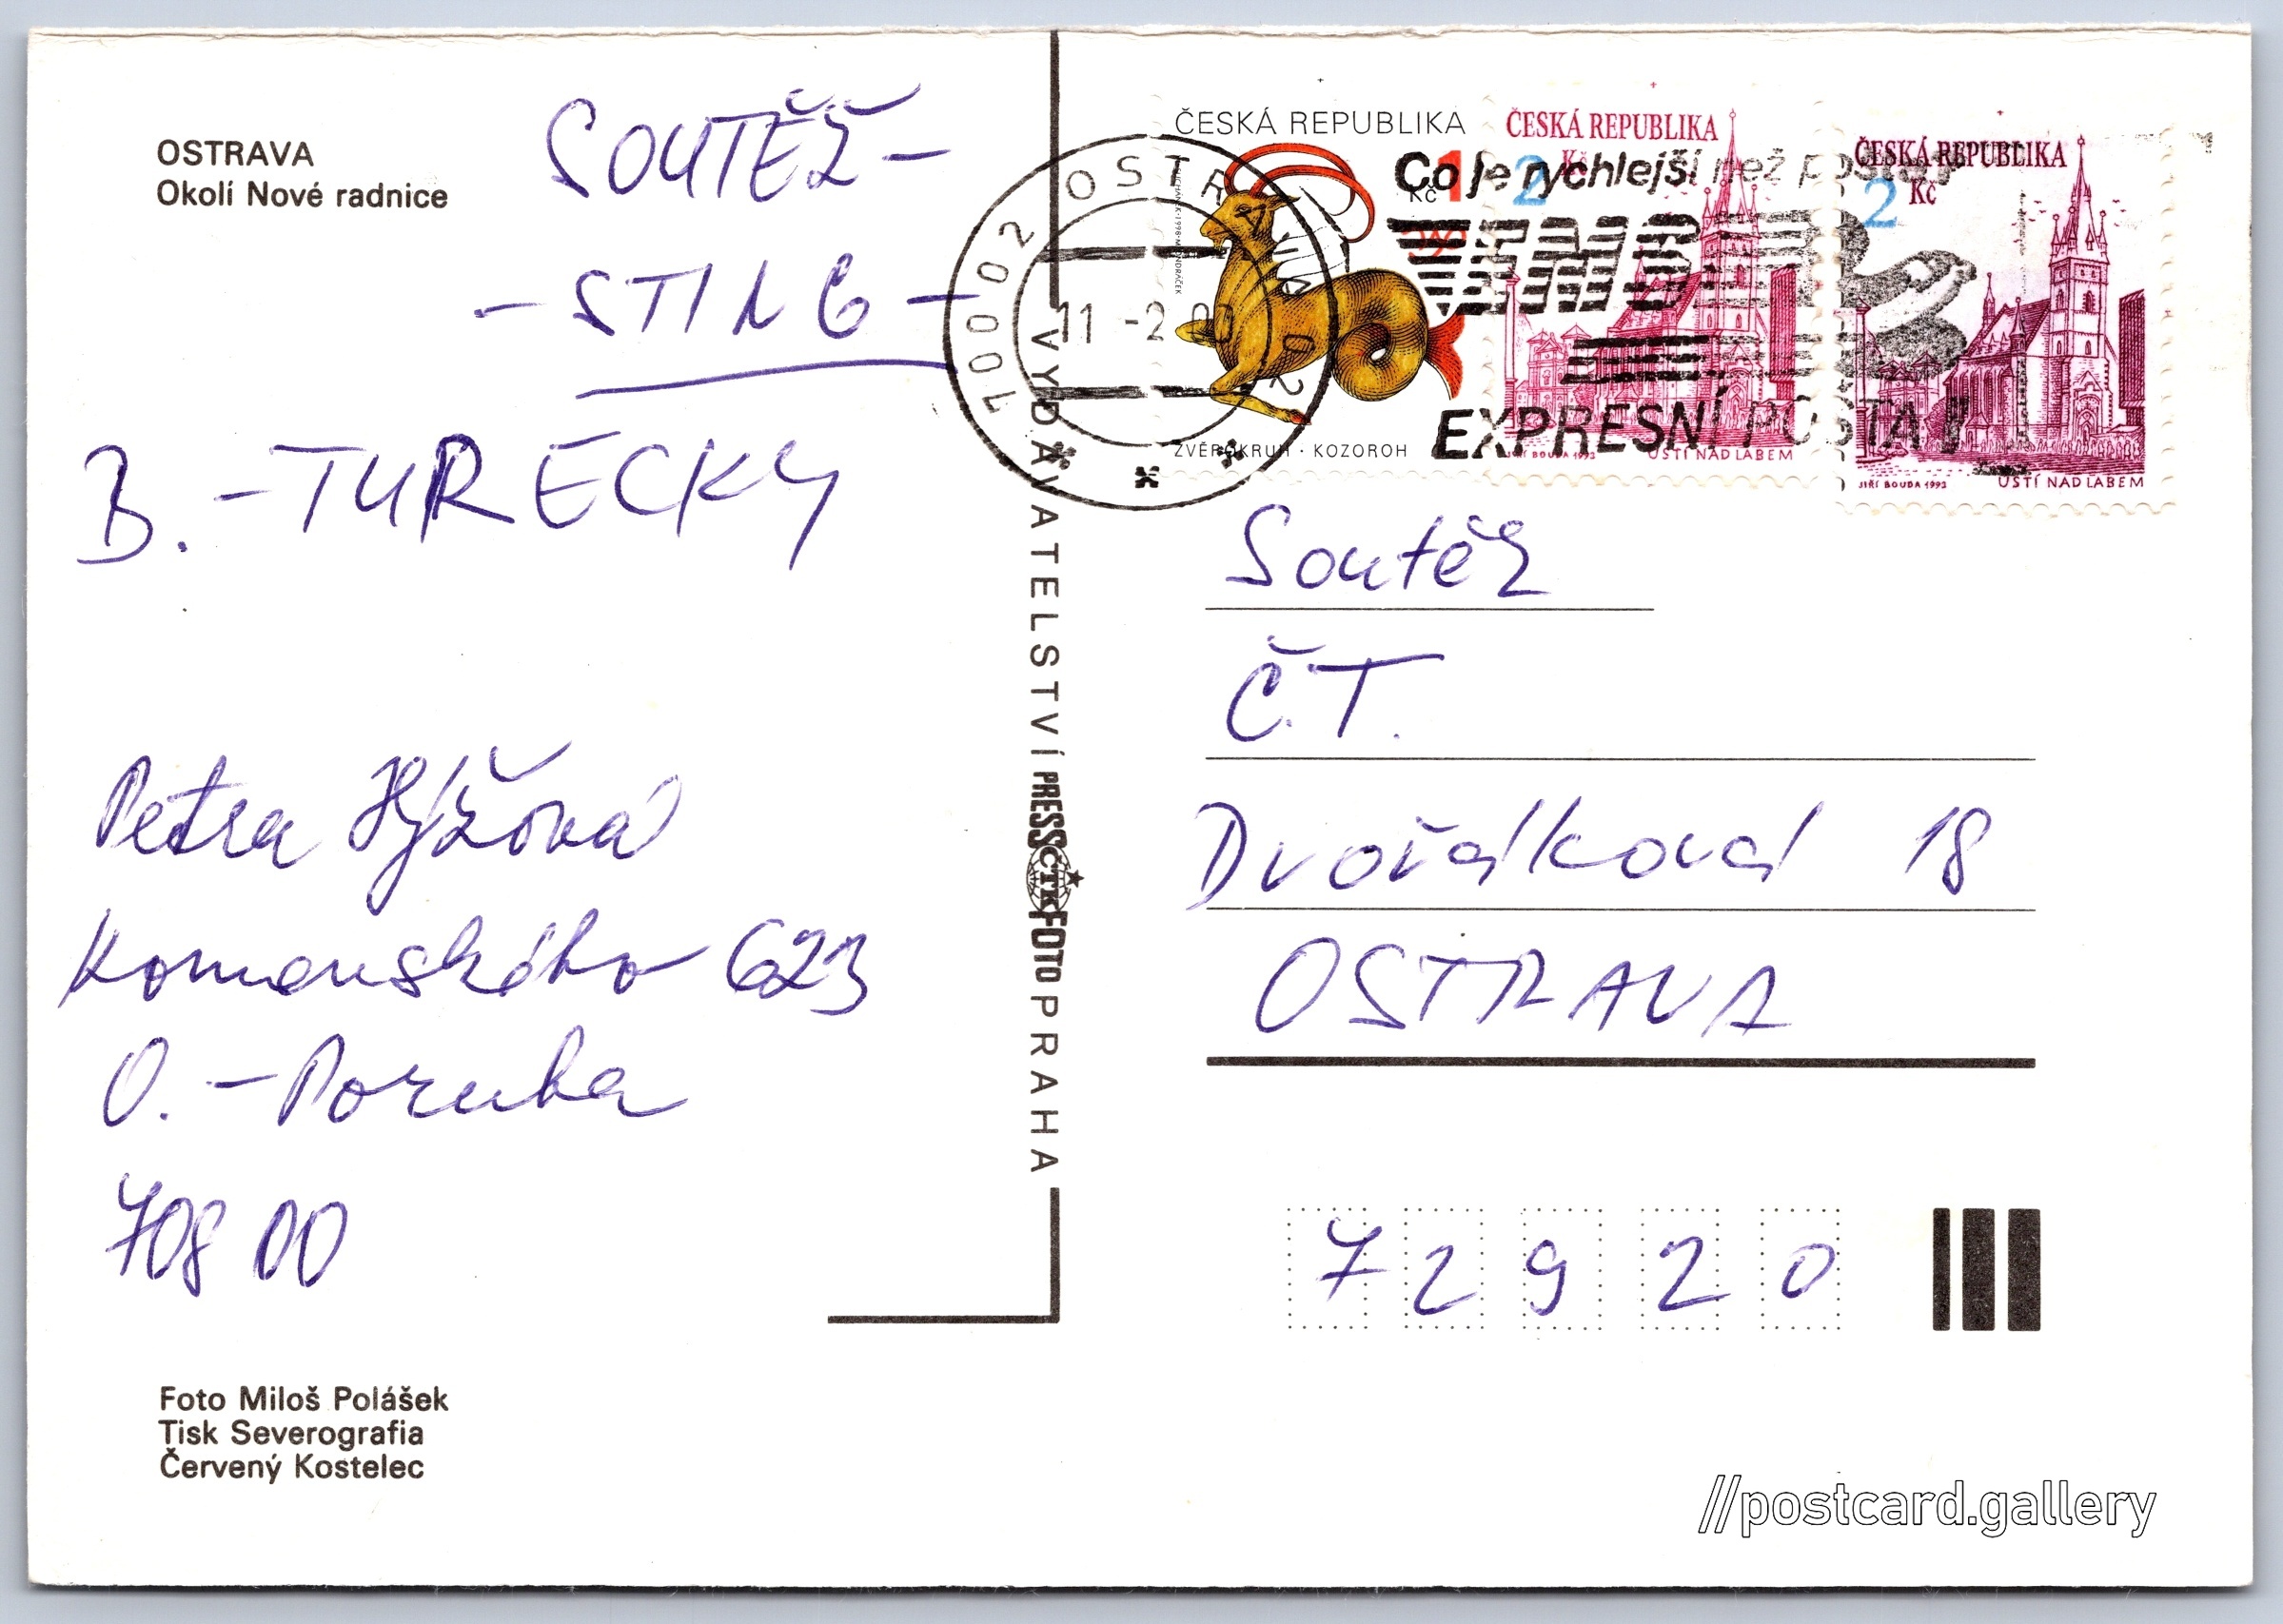 OSTRAVA
Okolí Nové radnice
SOUTĚŽ -
- STING -
B. - TURECKY
Petra Hýžová
Komenského 623
O. - Poruba
708 00
Foto Miloš Polášek
Tisk Severografia
Červený Kostelec
VYDAVATELSTVÍ PRESSFOTO PRAHA
ČTK
ČESKÁ REPUBLIKA
1 Kč
ZVĚROKRUH · KOZOROH
ČESKÁ REPUBLIKA
2 Kč
JIŘÍ BOUDA 1993 ÚSTÍ NAD LABEM
ČESKÁ REPUBLIKA
2 Kč
JIŘÍ BOUDA 1993 ÚSTÍ NAD LABEM
70002 OSTRAVA 02
11 -2 00
Co je rychlejší než pošta?
EMS
EXPRESNÍ POŠTA!
Soutěž
Č.T.
Dvořáková 18
OSTRAVA
72920
//postcard.gallery